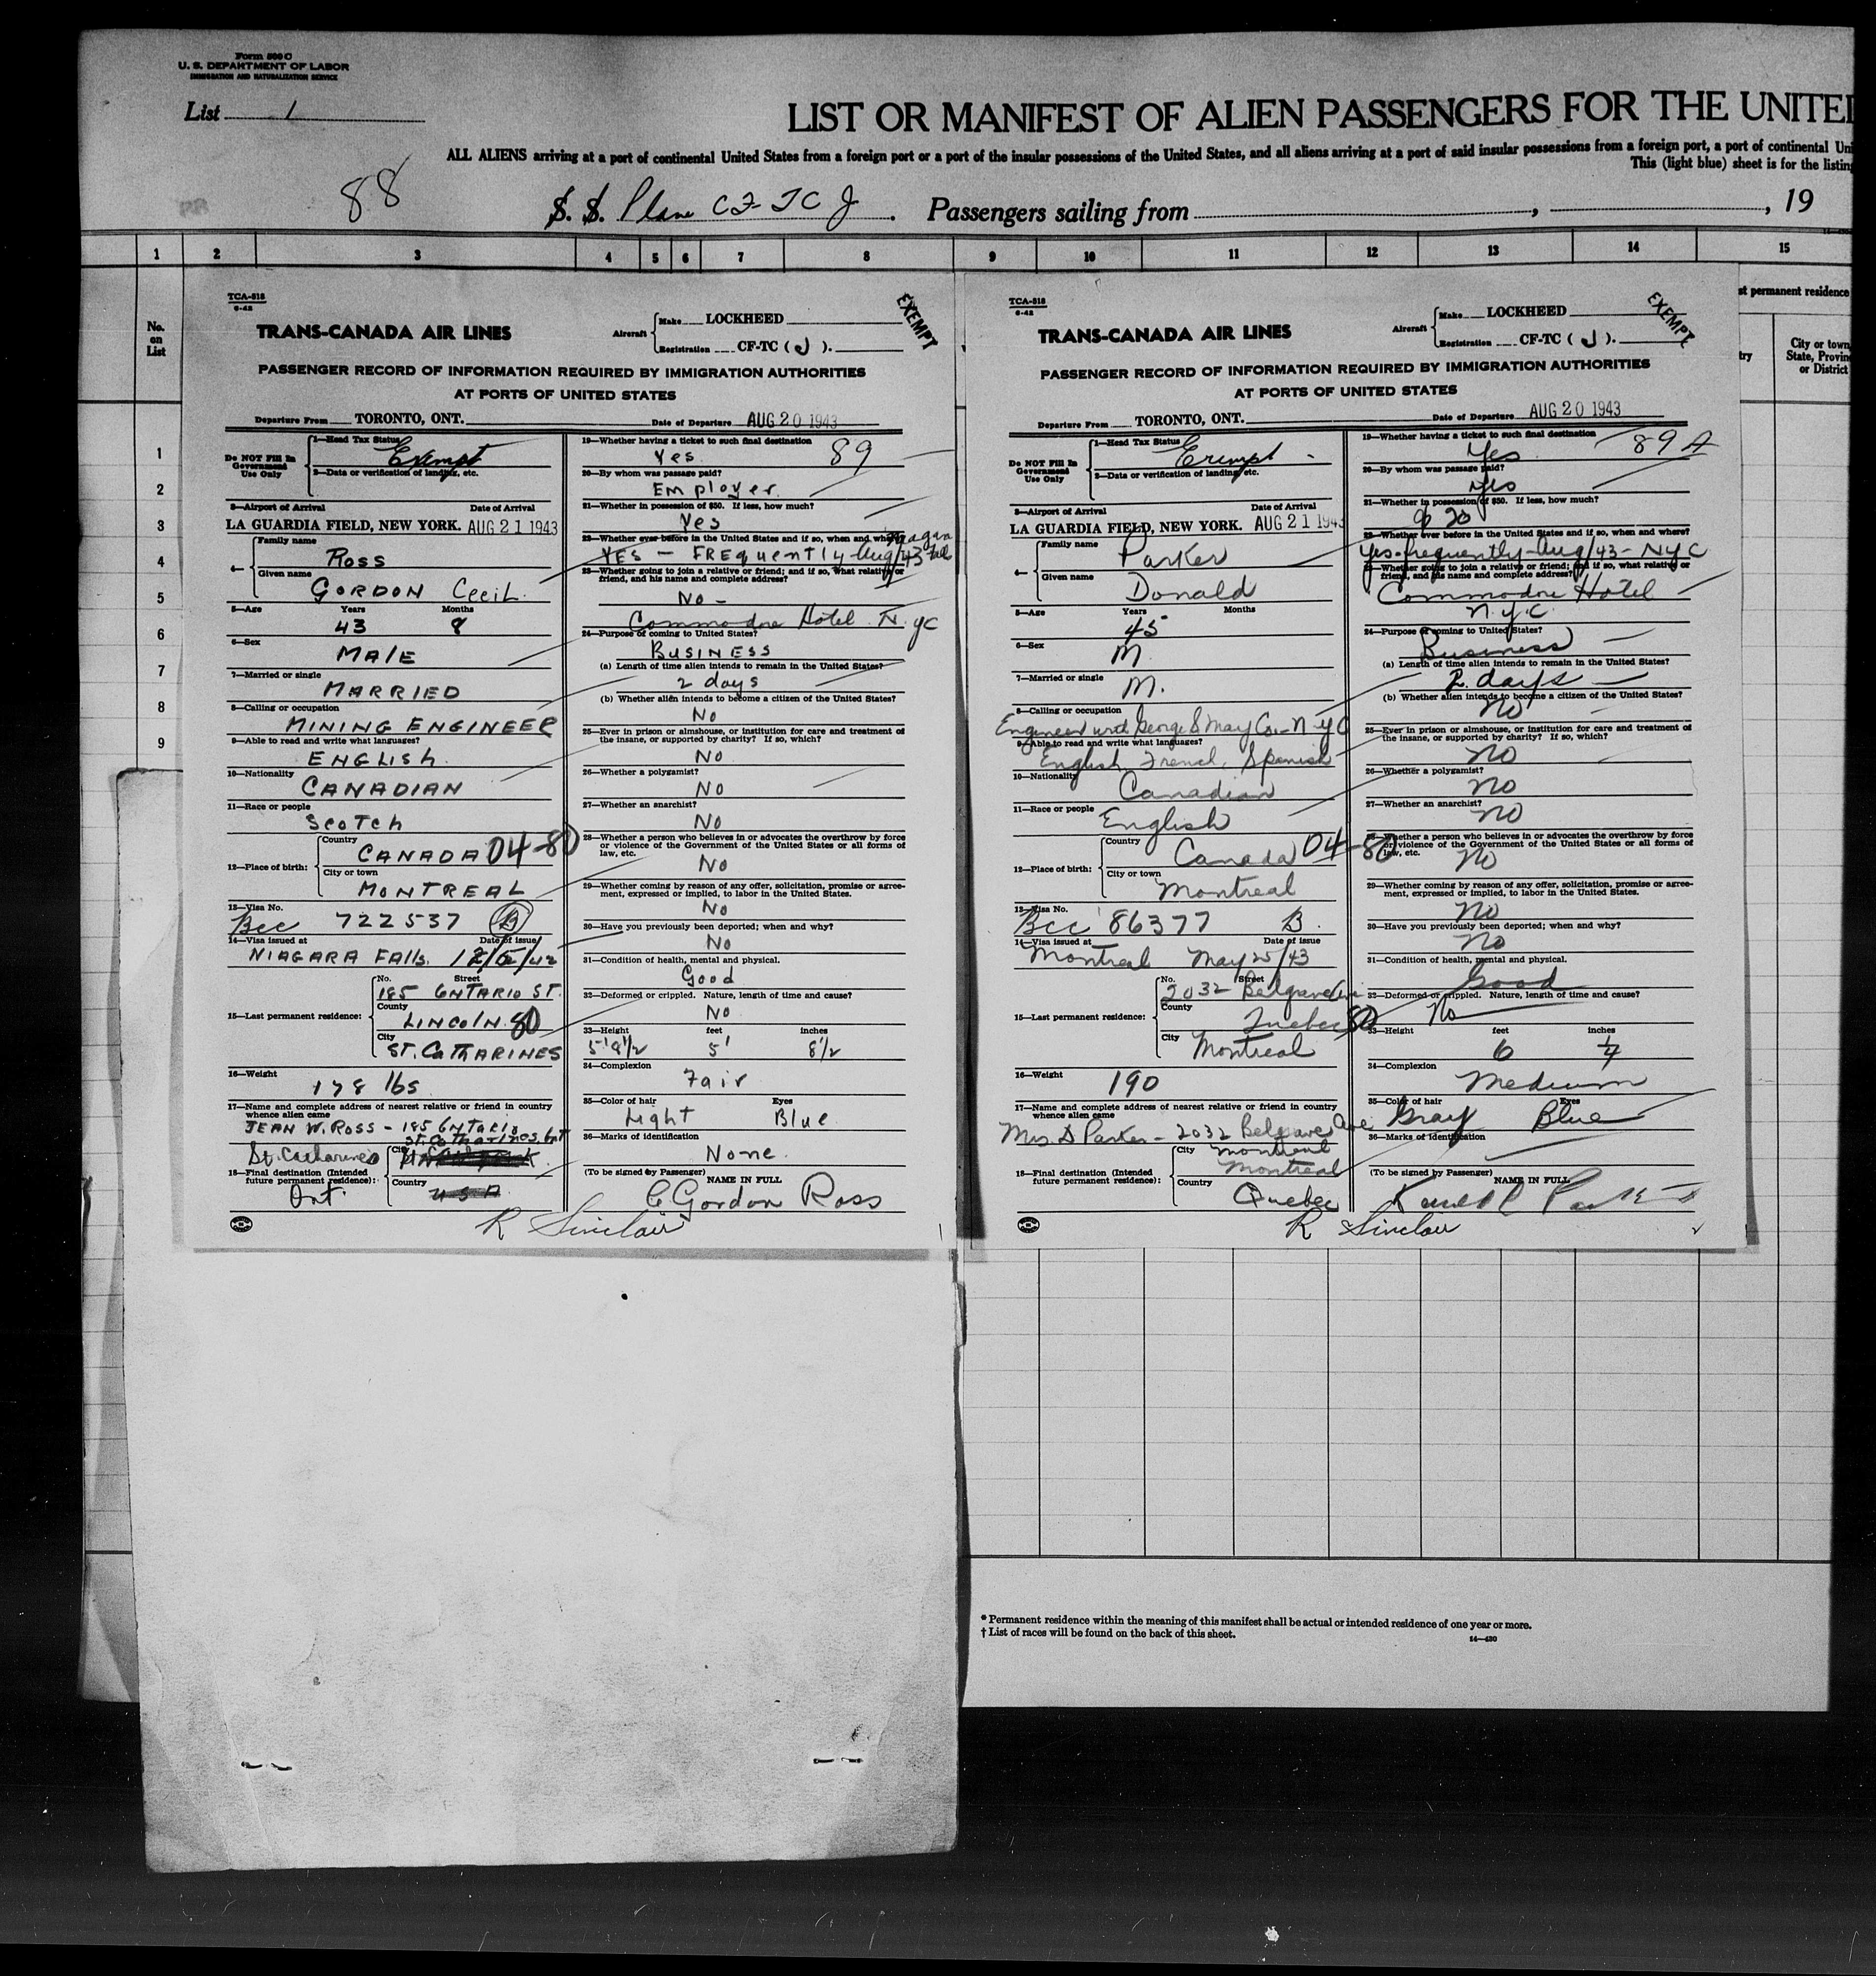 Form 500 C
U. S. DEPARTMENT OF LABOR
IMMIGRATION AND NATURALIZATION SERVICE
List 1
LIST OR MANIFEST OF ALIEN PASSENGERS FOR THE UNITE
ALL ALIENS arriving at a port of continental United States from a foreign port or a port of the insular possessions of the United States, and all aliens arriving at a port of said insular possessions from a foreign port, a port of continental Uni
This (light blue) sheet is for the listing
88
S. S. Plane CF-TC J. Passengers sailing from , , 19
1 2 3 4 5 6 7 8 9 10 11 12 13 14 15
No. on List
1
2
3
4
5
6
7
8
9
st permanent residence
try
City or town
State, Provin
or District
TCA-518
6-42
EXEMPT
TRANS-CANADA AIR LINES
Aircraft
Make LOCKHEED
Registration CF-TC ( J ).
PASSENGER RECORD OF INFORMATION REQUIRED BY IMMIGRATION AUTHORITIES
AT PORTS OF UNITED STATES
Departure From TORONTO, ONT. Date of Departure AUG 20 1943
Do NOT Fill In
Government
Use Only
1—Head Tax Status
Exempt
2—Data or verification of landing, etc.
3—Airport of Arrival Date of Arrival
LA GUARDIA FIELD, NEW YORK. AUG 21 1943
4— Family name
Ross
Given name
GORDON Cecil
5—Age Years Months
43 8
6—Sex
MALE
7—Married or single
MARRIED
8—Calling or occupation
MINING ENGINEER
9—Able to read and write what languages?
ENGLISH
10—Nationality
CANADIAN
11—Race or people
SCOTCH
12—Place of birth:
Country
CANADA 04-80
City or town
MONTREAL
13—Visa No.
Bcc 722537 B
14—Visa issued at Date of issue
NIAGARA FALLS. 12/5/42
15—Last permanent residence:
No. Street
185 ONTARIO ST.
County
LINCOLN 80
City
ST. CATHARINES
16—Weight
178 lbs
17—Name and complete address of nearest relative or friend in country
whence alien came
JEAN W. ROSS - 185 ONTARIO
ST. Catharines, Ont
18—Final destination (Intended
future permanent residence):
St. Catharines
Ont.
City
Country
USA
19—Whether having a ticket to such final destination
Yes 89
20—By whom was passage paid?
Employer
21—Whether in possession of $50. If less, how much?
Yes
22—Whether ever before in the United States and if so, when and where?
YES - FREQUENTLY - Aug/43
23—Whether going to join a relative or friend; and if so, what relative or
friend, and his name and complete address?
No -
Commodore Hotel N.YC
24—Purpose of coming to United States?
BUSINESS
(a) Length of time alien intends to remain in the United States?
2 days
(b) Whether alien intends to become a citizen of the United States?
No
25—Ever in prison or almshouse, or institution for care and treatment of
the insane, or supported by charity? If so, which?
No
26—Whether a polygamist?
No
27—Whether an anarchist?
No
28—Whether a person who believes in or advocates the overthrow by force
or violence of the Government of the United States or all forms of
law, etc.
No
29—Whether coming by reason of any offer, solicitation, promise or agree-
ment, expressed or implied, to labor in the United States.
No
30—Have you previously been deported; when and why?
No
31—Condition of health, mental and physical.
Good
32—Deformed or crippled. Nature, length of time and cause?
No
33—Height feet inches
5' 8½ 5' 8½
34—Complexion
Fair
35—Color of hair Eyes
Light Blue
36—Marks of identification
None
(To be signed by Passenger) NAME IN FULL
C Gordon Ross
R Sinclair
TCA-518
6-42
EXEMPT
TRANS-CANADA AIR LINES
Aircraft
Make LOCKHEED
Registration CF-TC ( J ).
PASSENGER RECORD OF INFORMATION REQUIRED BY IMMIGRATION AUTHORITIES
AT PORTS OF UNITED STATES
Departure From TORONTO, ONT. Date of Departure AUG 20 1943
Do NOT Fill In
Government
Use Only
1—Head Tax Status
Exempt -
2—Data or verification of landing, etc.
3—Airport of Arrival Date of Arrival
LA GUARDIA FIELD, NEW YORK. AUG 21 1943
4— Family name
Parker
Given name
Donald
5—Age Years Months
45
6—Sex
M.
7—Married or single
M.
8—Calling or occupation
Engineer with George S May Co. - N.Y.C
9—Able to read and write what languages?
English French, Spanish
10—Nationality
Canadian
11—Race or people
English
12—Place of birth:
Country
Canada 04-80
City or town
Montreal
13—Visa No.
Bcc 86377 B.
14—Visa issued at Date of issue
Montreal May 25/43
15—Last permanent residence:
No. Street
2032 Belgrave Ave
County
Quebec 80
City
Montreal
16—Weight
190
17—Name and complete address of nearest relative or friend in country
whence alien came
Mrs D Parker - 2032 Belgrave Ave
Montreal
18—Final destination (Intended
future permanent residence):
City
Montreal
Country
Quebec
19—Whether having a ticket to such final destination
Yes 89 A
20—By whom was passage paid?
Yes
21—Whether in possession of $50. If less, how much?
$ 20
22—Whether ever before in the United States and if so, when and where?
Yes - frequently - Aug/43 - NYC
23—Whether going to join a relative or friend; and if so, what relative or
friend, and his name and complete address?
Commodore Hotel
N.Y.C.
24—Purpose of coming to United States?
Business
(a) Length of time alien intends to remain in the United States?
2 days
(b) Whether alien intends to become a citizen of the United States?
No
25—Ever in prison or almshouse, or institution for care and treatment of
the insane, or supported by charity? If so, which?
No
26—Whether a polygamist?
No
27—Whether an anarchist?
No
28—Whether a person who believes in or advocates the overthrow by force
or violence of the Government of the United States or all forms of
law, etc.
No
29—Whether coming by reason of any offer, solicitation, promise or agree-
ment, expressed or implied, to labor in the United States.
No
30—Have you previously been deported; when and why?
No
31—Condition of health, mental and physical.
Good
32—Deformed or crippled. Nature, length of time and cause?
No
33—Height feet inches
6
34—Complexion
Medium
35—Color of hair Eyes
Gray Blue
36—Marks of identification
(To be signed by Passenger) NAME IN FULL
R Sinclair
* Permanent residence within the meaning of this manifest shall be actual or intended residence of one year or more.
† List of races will be found on the back of this sheet.
14—430